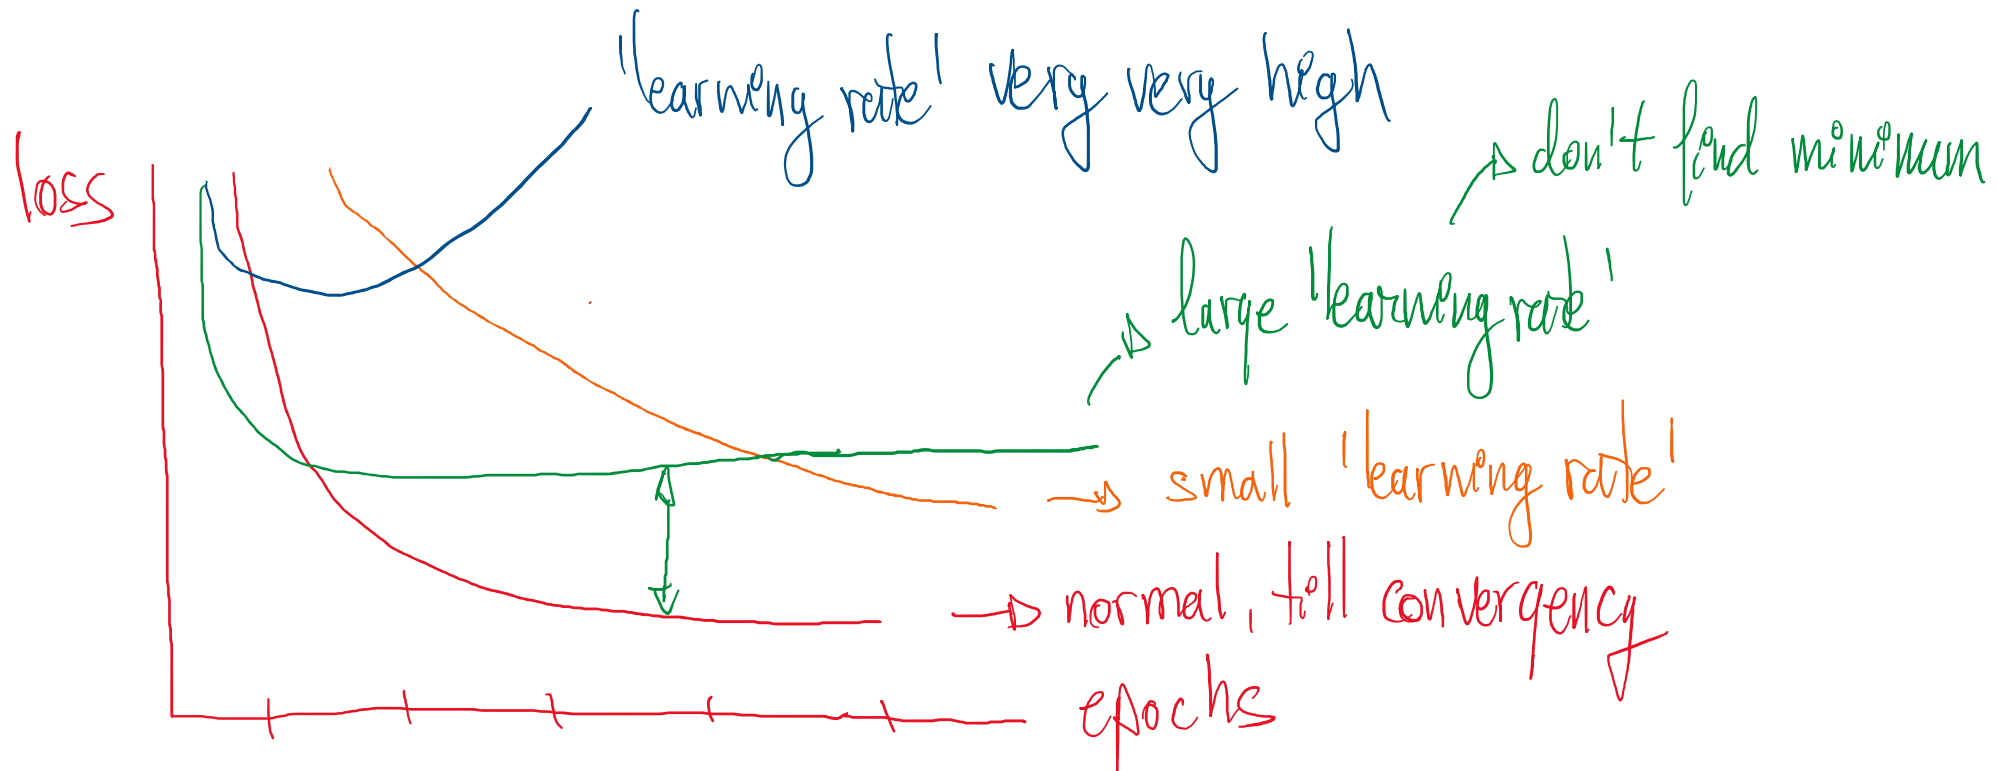 'learning rate' very very high
don't find minimum
loss
large 'learning rate'
small 'learning rate'
normal, till convergency
epochs